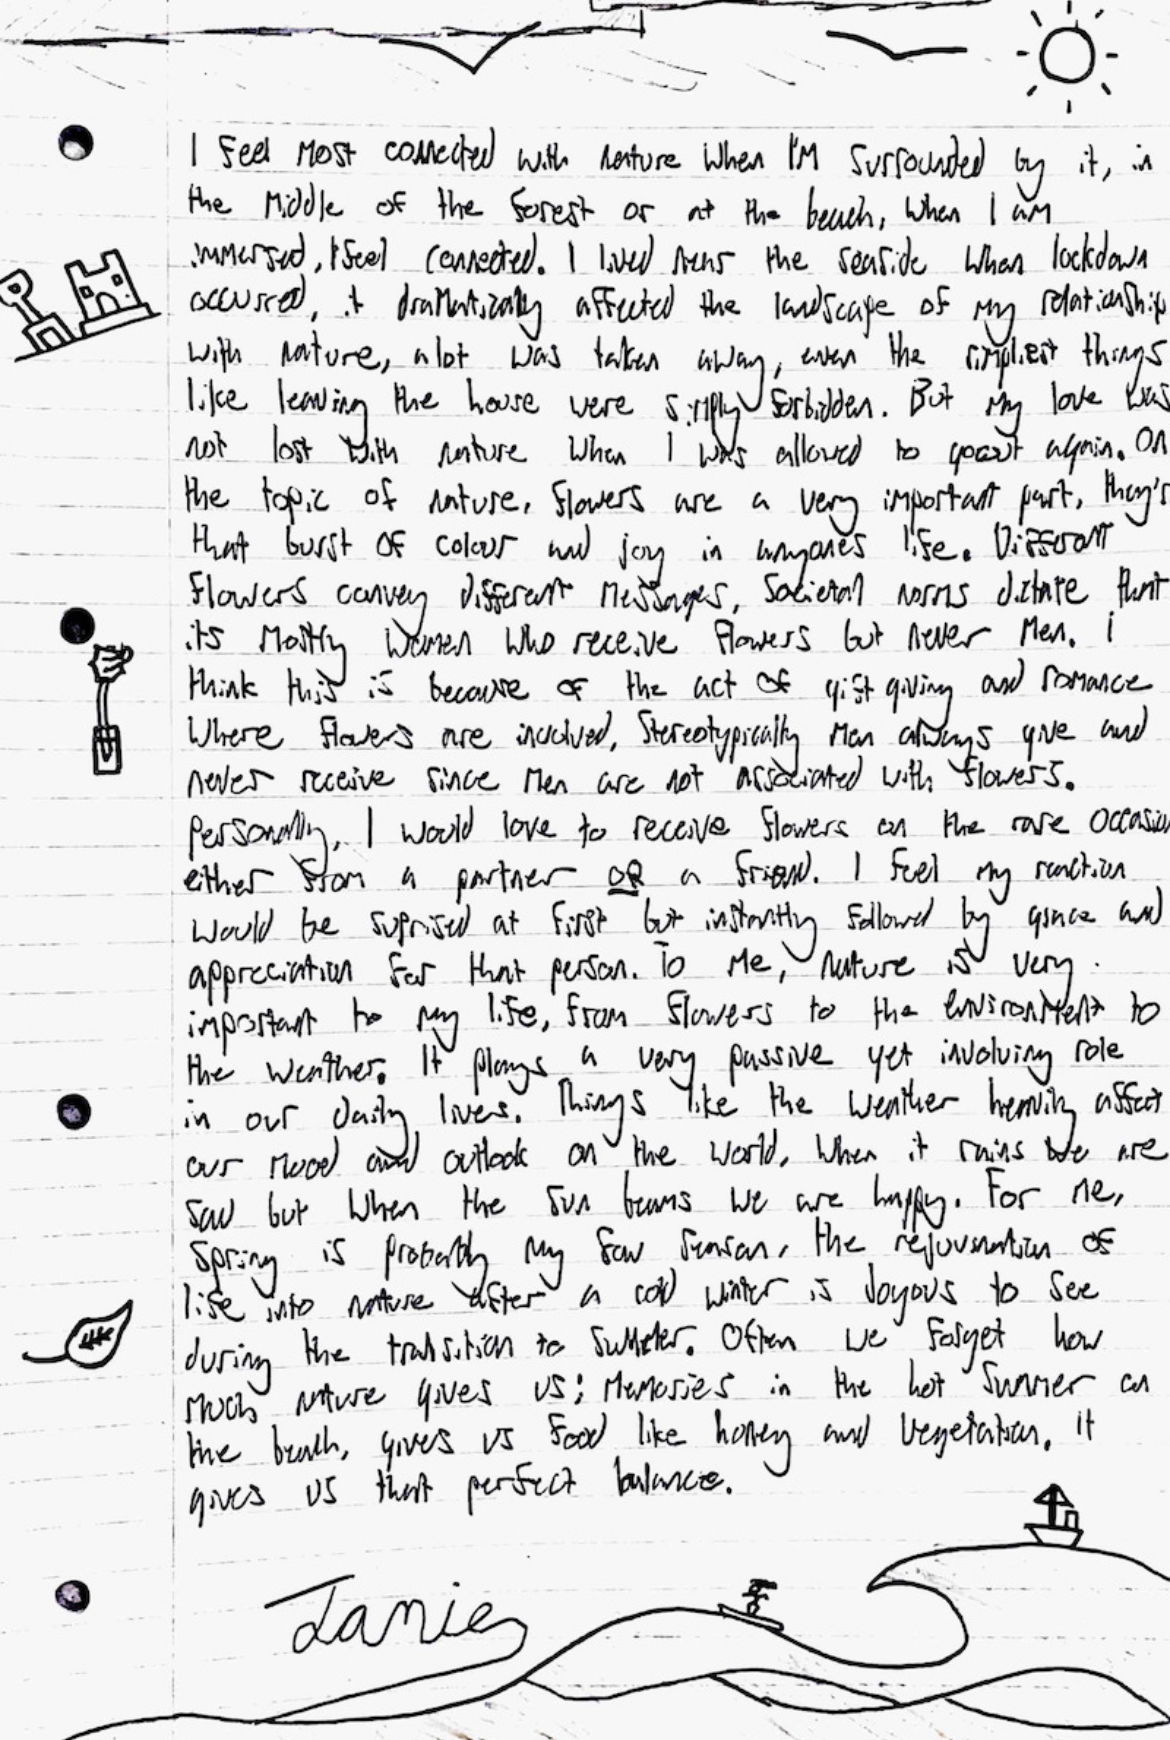 I feel most connected with nature when I'm surrounded by it, in
the middle of the forest or at the beach, when I am
immersed, I feel connected. I lived near the seaside when lockdown
occured, it dramatically affected the landscape of my relationship
with nature, a lot was taken away, even the simpliest things
like leaving the house were simply forbidden. But my love was
not lost with nature when I was allowed to go out again. On
the topic of nature, flowers are a very important part, they'r
that burst of colour and joy in anyones life. Different
flowers convey different messages, societal norms dictate that
its mostly women who receive flowers but never men. i
think this is because of the act of gift giving and romance
where flowers are involved, Stereotypically men always give and
never receive since men are not associated with flowers.
personally, I would love to receive flowers on the rare occasion
either from a partner OR a friend. I feel my reaction
would be suprised at first but instantly followed by grace and
appreciation for that person. To me, nature is very
important to my life, from flowers to the environment to
the weather. It plays a very passive yet involving role
in our daily lives. Things like the weather heavily affect
our mood and outlook on the world, when it rains we are
sad but when the sun beams we are happy. For me,
spring is probably my fav season, the rejuvenation of
life into nature after a cold winter is joyous to see
during the transition to summer. Often we forget how
much nature gives us; memories in the hot summer on
the beach, gives us food like honey and vegetation. It
gives us that perfect balance.